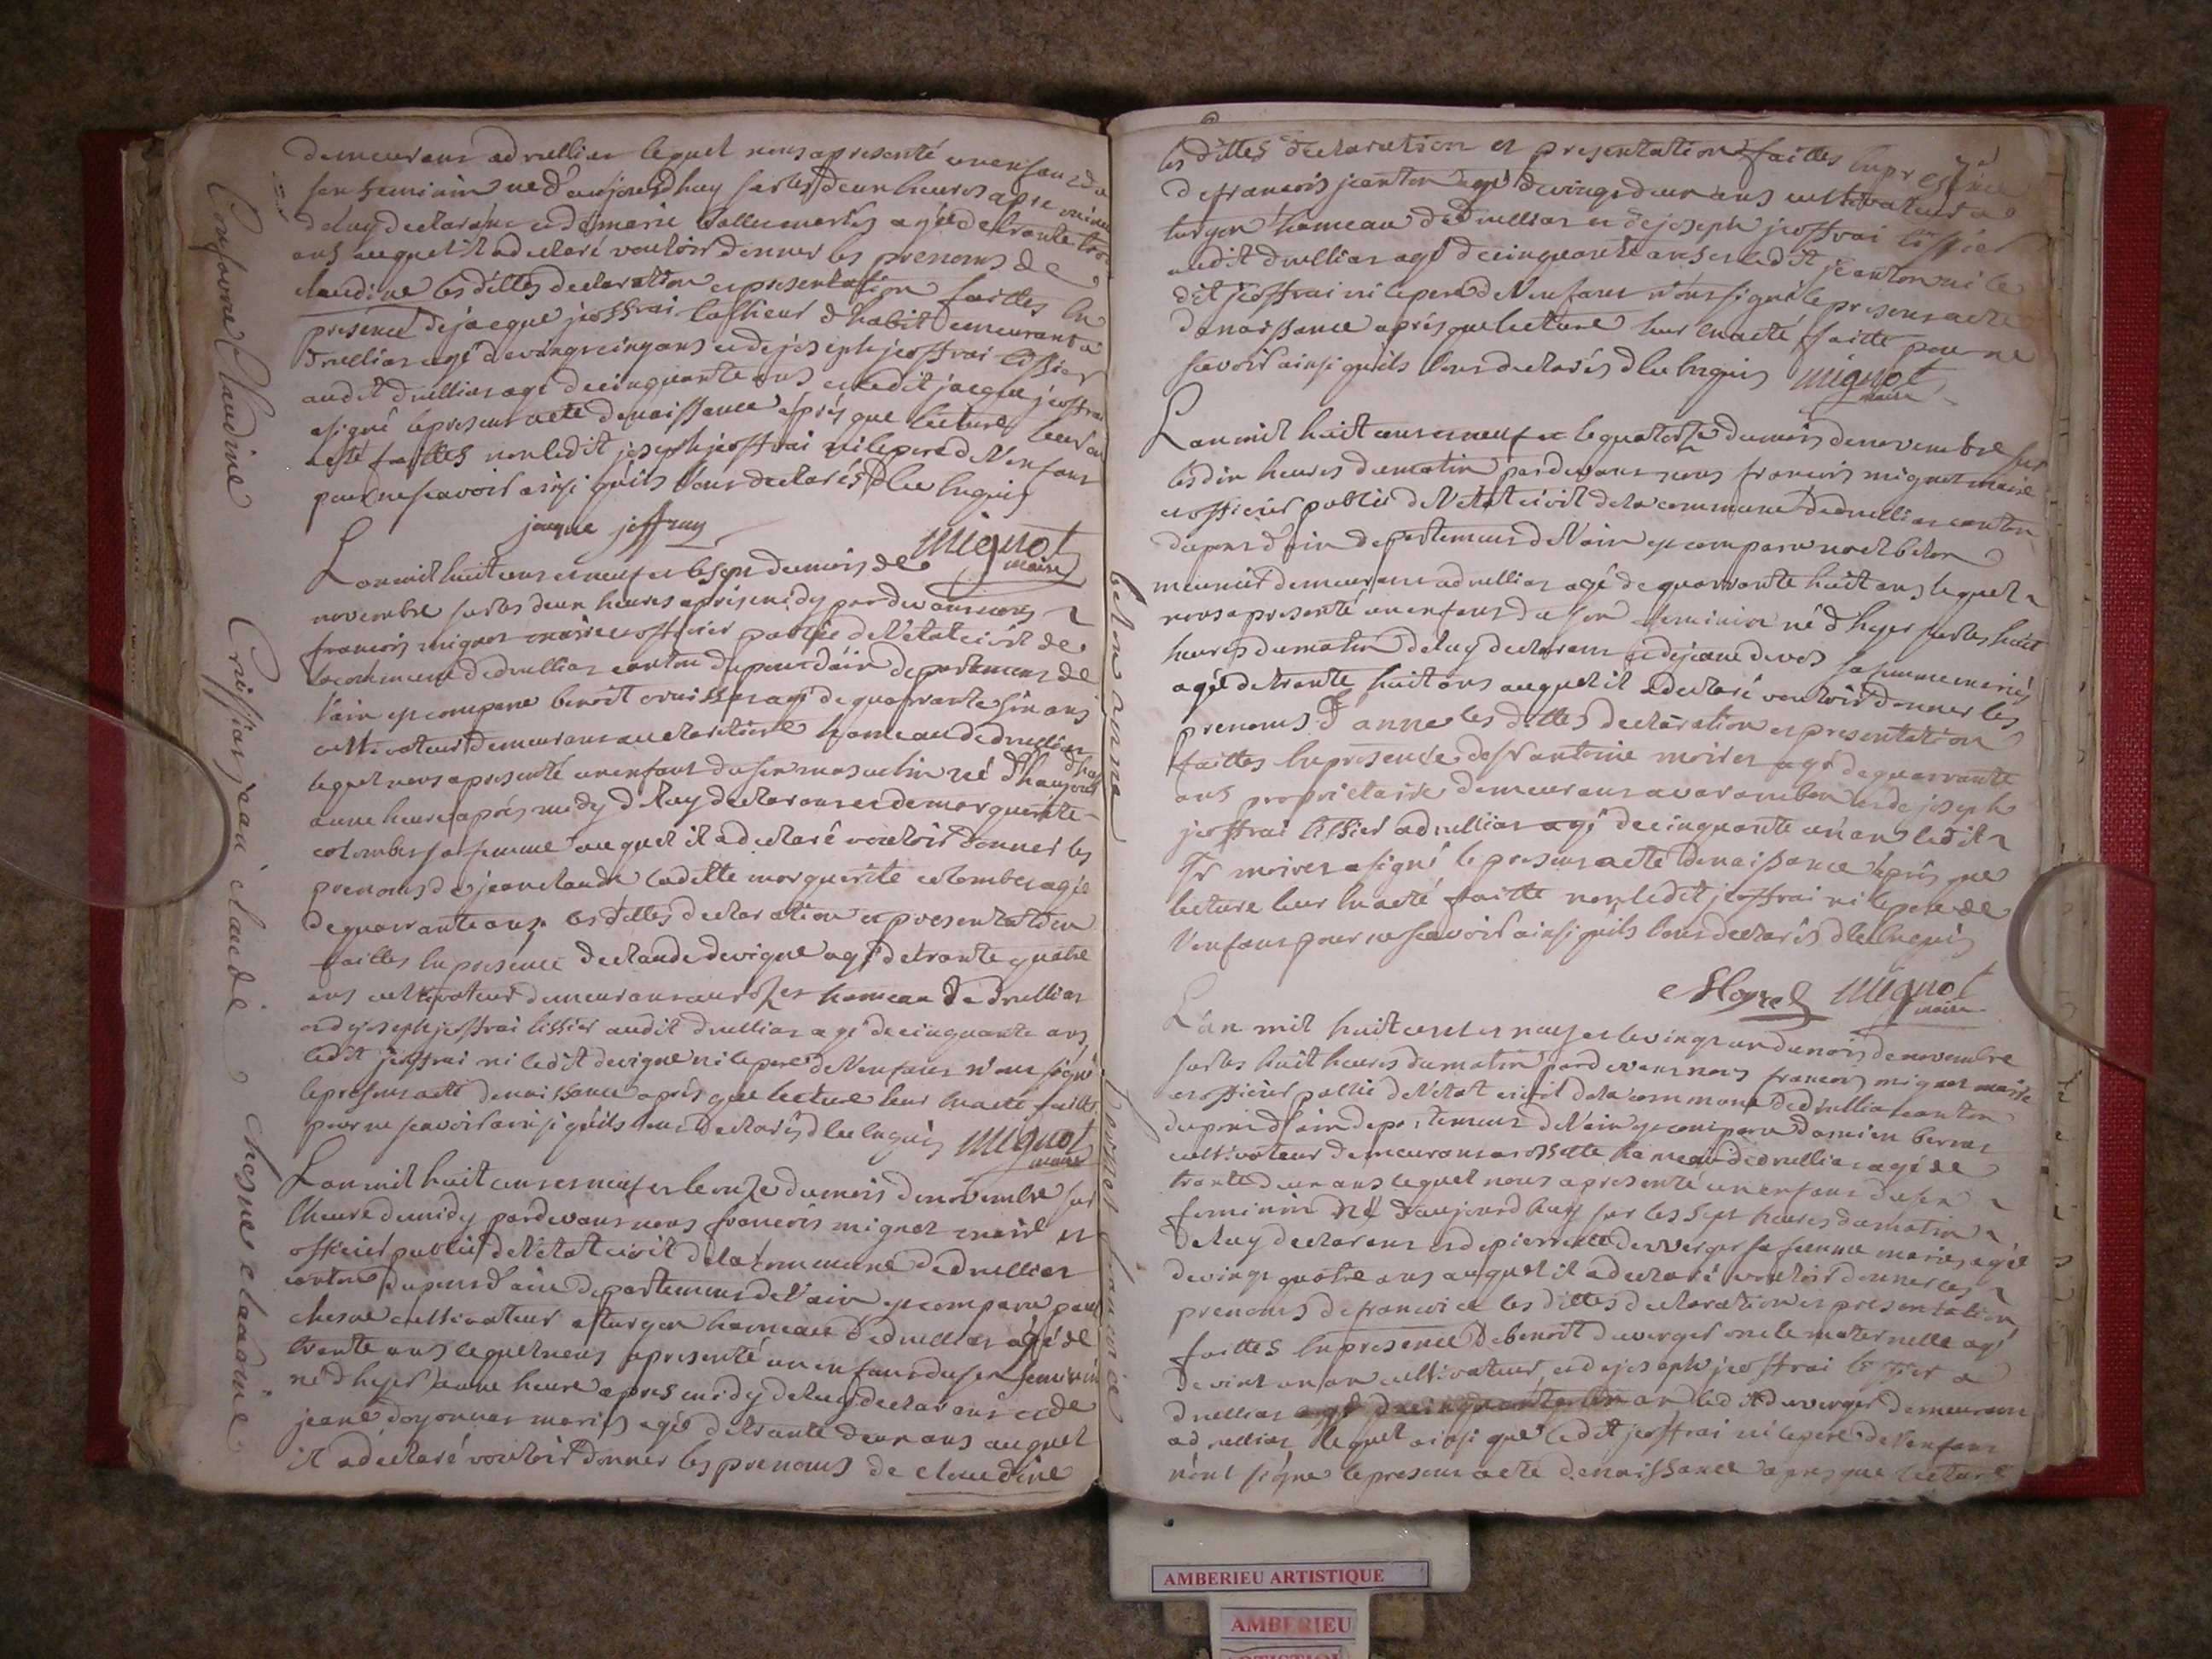 demeurant a druillias lequel nous a presenté un enfant du
sex feminin né d'aujourdhuy sur les deux heures apres midy
de luy declarant et de marie agée de trante trois
ans auquel il a declaré vouloir donner les prenoms de
claudine les dittes declaration et presentation faittes en
presence de jacque jeoffrai tallieur d'habit demeurant a
druillias agé de vingt cinq ans et de joseph jeoffrai tissier
audit druillias agé de cinquante ans et ledit jacque jeoffrai
a signé le present acte de naissance après que lecture leur en a
eté faittes non ledit joseph jeoffrai ni le pere de l'enfant
pour ne scavoir ainsi qu'ils l'ont declarés de ce enquis
jacque jeffray
mignot
maire
L'an mil huit cent et neuf et le sept du mois de
novembre sur les deux heures après midy par devant nous
francois mignot maire et officier public de l'etat civil de
la commune de druillias canton du pont d'ain departement de
l'ain est comparu benoit cruissiat agé de quarrante six ans
cultivateur demeurant hameau de druillias
lequel nous a presenté un enfant du sex masculin né d'haujourd'huy
a une heure après midy de luy declarant et de marguerite
colombet sa femme auquel il a declaré vouloir donner les
prenoms de jean claude laditte marguerite colombet agée
de quarrante ans les dittes declaration et presentation
faittes en presence de claude devigne agé de trante quatre
ans cultivateur demeurant hameau de druillias
et de joseph jeoffrai tissier audit druillias agé de cinquante ans
ledit jeoffrai ni ledit devigne ni le pere de l'enfant n'ont signé
le present acte de naissance après que lecture leur en a eté faitte
pour ne scavoir ainsi qu'ils l'ont declarés de ce enquis mignot
maire
L'an mil huit cent et neuf et le onze du mois de novembre sur
l'heure de midy par devant nous francois mignot maire et
officier public de l'etat civil de la commune de druillias
canton du pont d'ain departement de l'ain est comparu paul
chesne cultivateur a turgon hameau de druillias agé de
trante ans lequel nous a presenté un enfant du sex feminin
né d'hyer a une heure apres midy de luy declarant et de
jeane doyonnas mariés agée de trante deux ans auquel
il a declaré vouloir donner les prenoms de claudine
Claudine
Cruissiat jean claude
chesne claudine
les dittes declaration et presentation faittes en presence
de francois jeanton agé de vingt deux ans cultivateur a
turgon hameau de druillias et de joseph jeoffrai tissier
audit druillias agé de cinquante ans et ledit jeanton ni le
dit jeoffrai ni le pere de l'enfant n'ont signé le present acte
de naissance après que lecture leur en a eté faitte pour ne
scavoir ainsi qu'ils l'ont declarés de ce enquis mignot
maire
L'an mil huit cent et neuf et le quatorze du mois de novembre sur
les dix heures du matin par devant nous francois mignot maire
et officier public de l'etat civil de la commune de druillias canton
du pont d'ain departement de l'ain est comparu noel belon
meunier demeurant a druillias agé de quarrante huit ans lequel
nous a presenté un enfant du sex feminin né d'hyer sur les huit
heures du matin de luy declarant et de jeane sa femme mariés
agée de trante huit ans auquel il a declaré vouloir donner les
prenoms d'anne les dittes declaration et presentation
faittes en presence de sr antoine agé de quarrante
ans proprietaire demeurant a varambon et de joseph
jeoffrai tissier a druillias agé de cinquante un an ledit
sr a signé le present acte de naissance après que
lecture leur en a eté faitte non ledit jeoffrai ni le pere de
l'enfant pour ne scavoir ainsi qu'ils l'ont declarés de ce enquis
mignot
maire
L'an mil huit cent et neuf et le vingt un du mois de novembre
sur les huit heures du matin par devant nous francois mignot maire
et officier public de l'etat civil de la commune de druillia canton
du pont d'ain departement de l'ain est comparu damien bernet
cultivateur demeurant a rossette hameau de druillias agé de
trante deux ans lequel nous a presenté un enfant du sex
feminin né d'aujourdhuy sur les sept heures du matin
de luy declarant et de pierrette duverger sa femme mariés agée
de vingt quatre ans auquel il a declaré vouloir donner les
prenoms de francoise les dittes declaration et presentation
faittes en presence de benoit duverger oncle maternelle agé
de vint un an cultivateur et de joseph jeoffrai tissier a
druillias an ledit duverger demeurant
a druillias lequel ainsi que ledit jeoffrai ni le pere de l'enfant
n'ont signé le present acte de naissance apres que lecture
belon anne
bernet francoise
AMBERIEU ARTISTIQUE
AMBERIEU